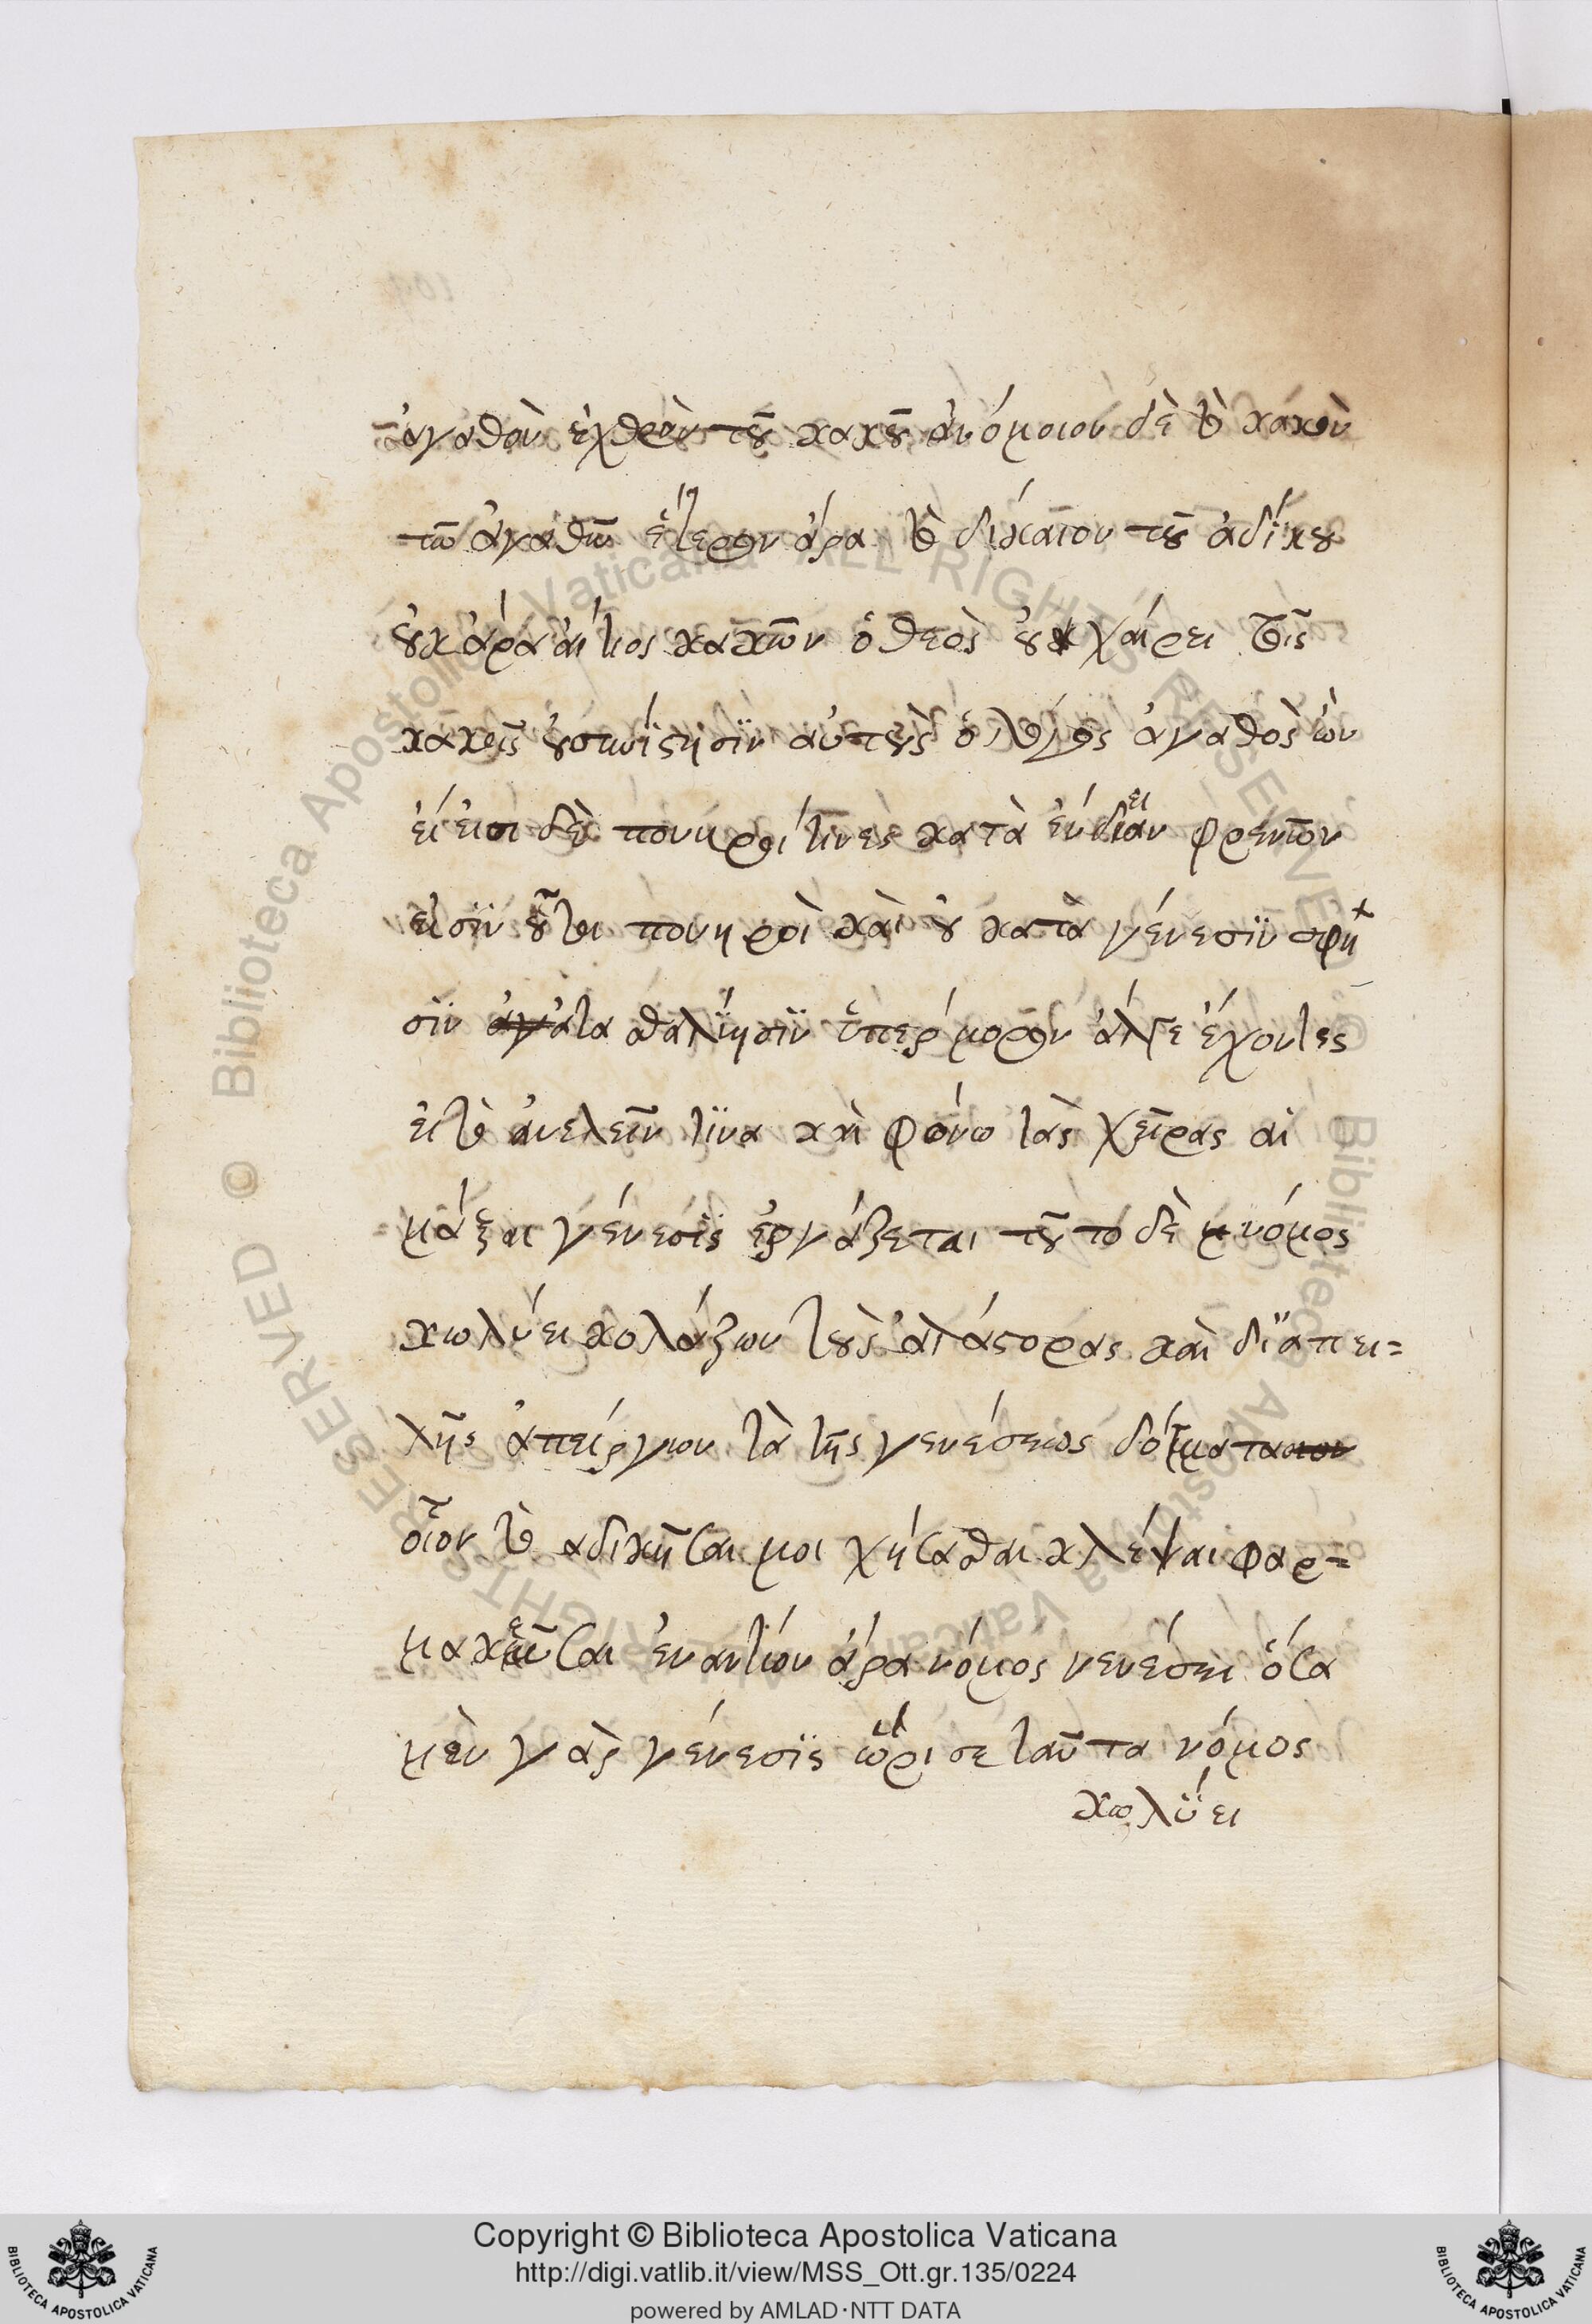 ἀγαθὸν ἐχθρὸν τοῦ κακοῦ ἀνόμοιον δὲ τὸ κακὸν
τῶ ἀγαθῶ ἕτερον ἄρα τὸ δίκαιον τοῦ ἀδίκου
οὐκ ἄρα αἴτιος κακῶν ὁ θεὸς οὐ χαίρει τοῖς
κακοῖς αὐτοὺς ὁ λόγος ἀγαθὸς ὢν
εἰ εἰσι δὲ πονηροί τινες κατὰ ἔνδειαν φρενῶν
εἰσὶν οὗτοι πονηροὶ καὶ οὐ κατὰ γένεσιν σφῆ
σιν ἀτασθαλίησιν ὑπέρμορον ἄλγε ἔχοντες
εἰ τὸ ἀνελεῖν τινα καὶ φόνω τὰς χεῖρας αἱ
μάξαι γένεσις ἐργάζεται τοῦτο δὲ νόμος
κωλύει κολάζων τοὺς ἀλάστορας καὶ δι' ἀπει=
λῆς ἀπείργων τὰ τῆς γενέσεως δόγματα
οἷον τὸ ἀδικῆσαι μοι χήσασθαι κλέψαι φαρ=
μακεῦσαι ἐναντίον ἄρα νόμος γενέσει ὅσα
μὲν γὰρ γένεσις ὥρισε ταῦτα νόμος
κωλύει
Copyright © Biblioteca Apostolica Vaticana
http://digi.vatlib.it/view/MSS_Ott.gr.135/0224
powered by AMLAD·NTT DATA
BIBLIOTECA APOSTOLICA VATICANA
BIBLIOTECA APOSTOLICA VATICANA